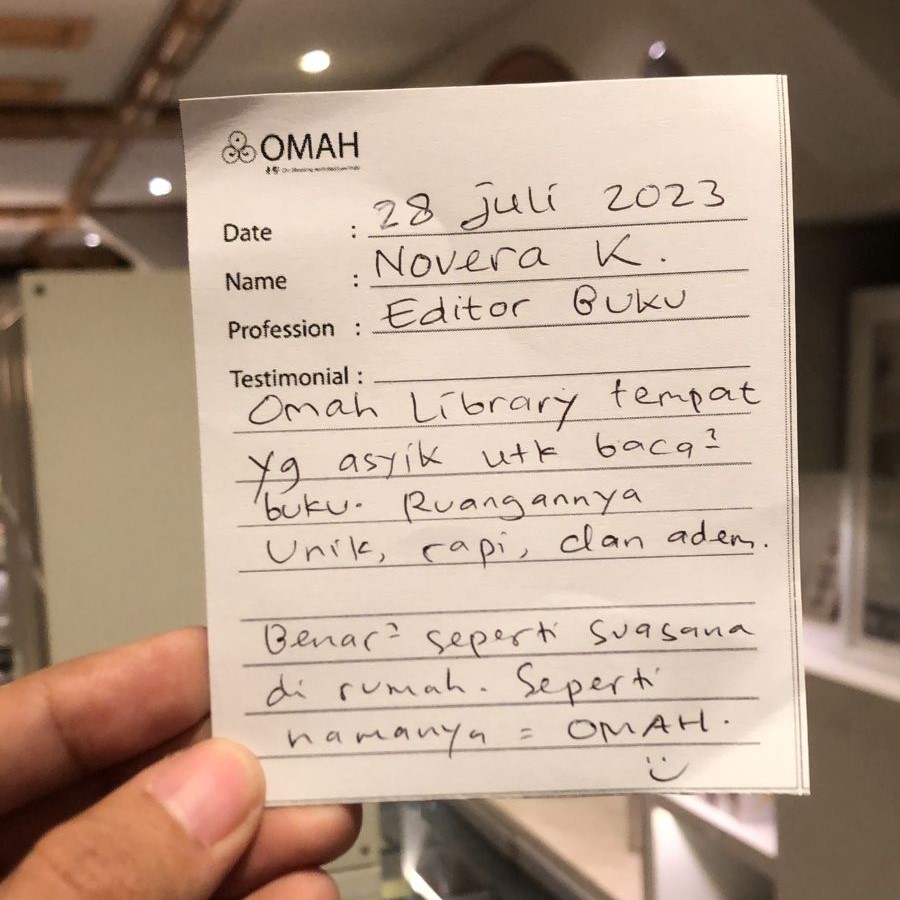 OMAH
Date : 28 juli 2023
Name : Novera K.
Profession : Editor Buku
Testimonial :
Omah Library tempat
yg asyik utk baca²
buku. Ruangannya
Unik, rapi, dan adem.
Benar² seperti suasana
di rumah. Seperti
namanya = OMAH.